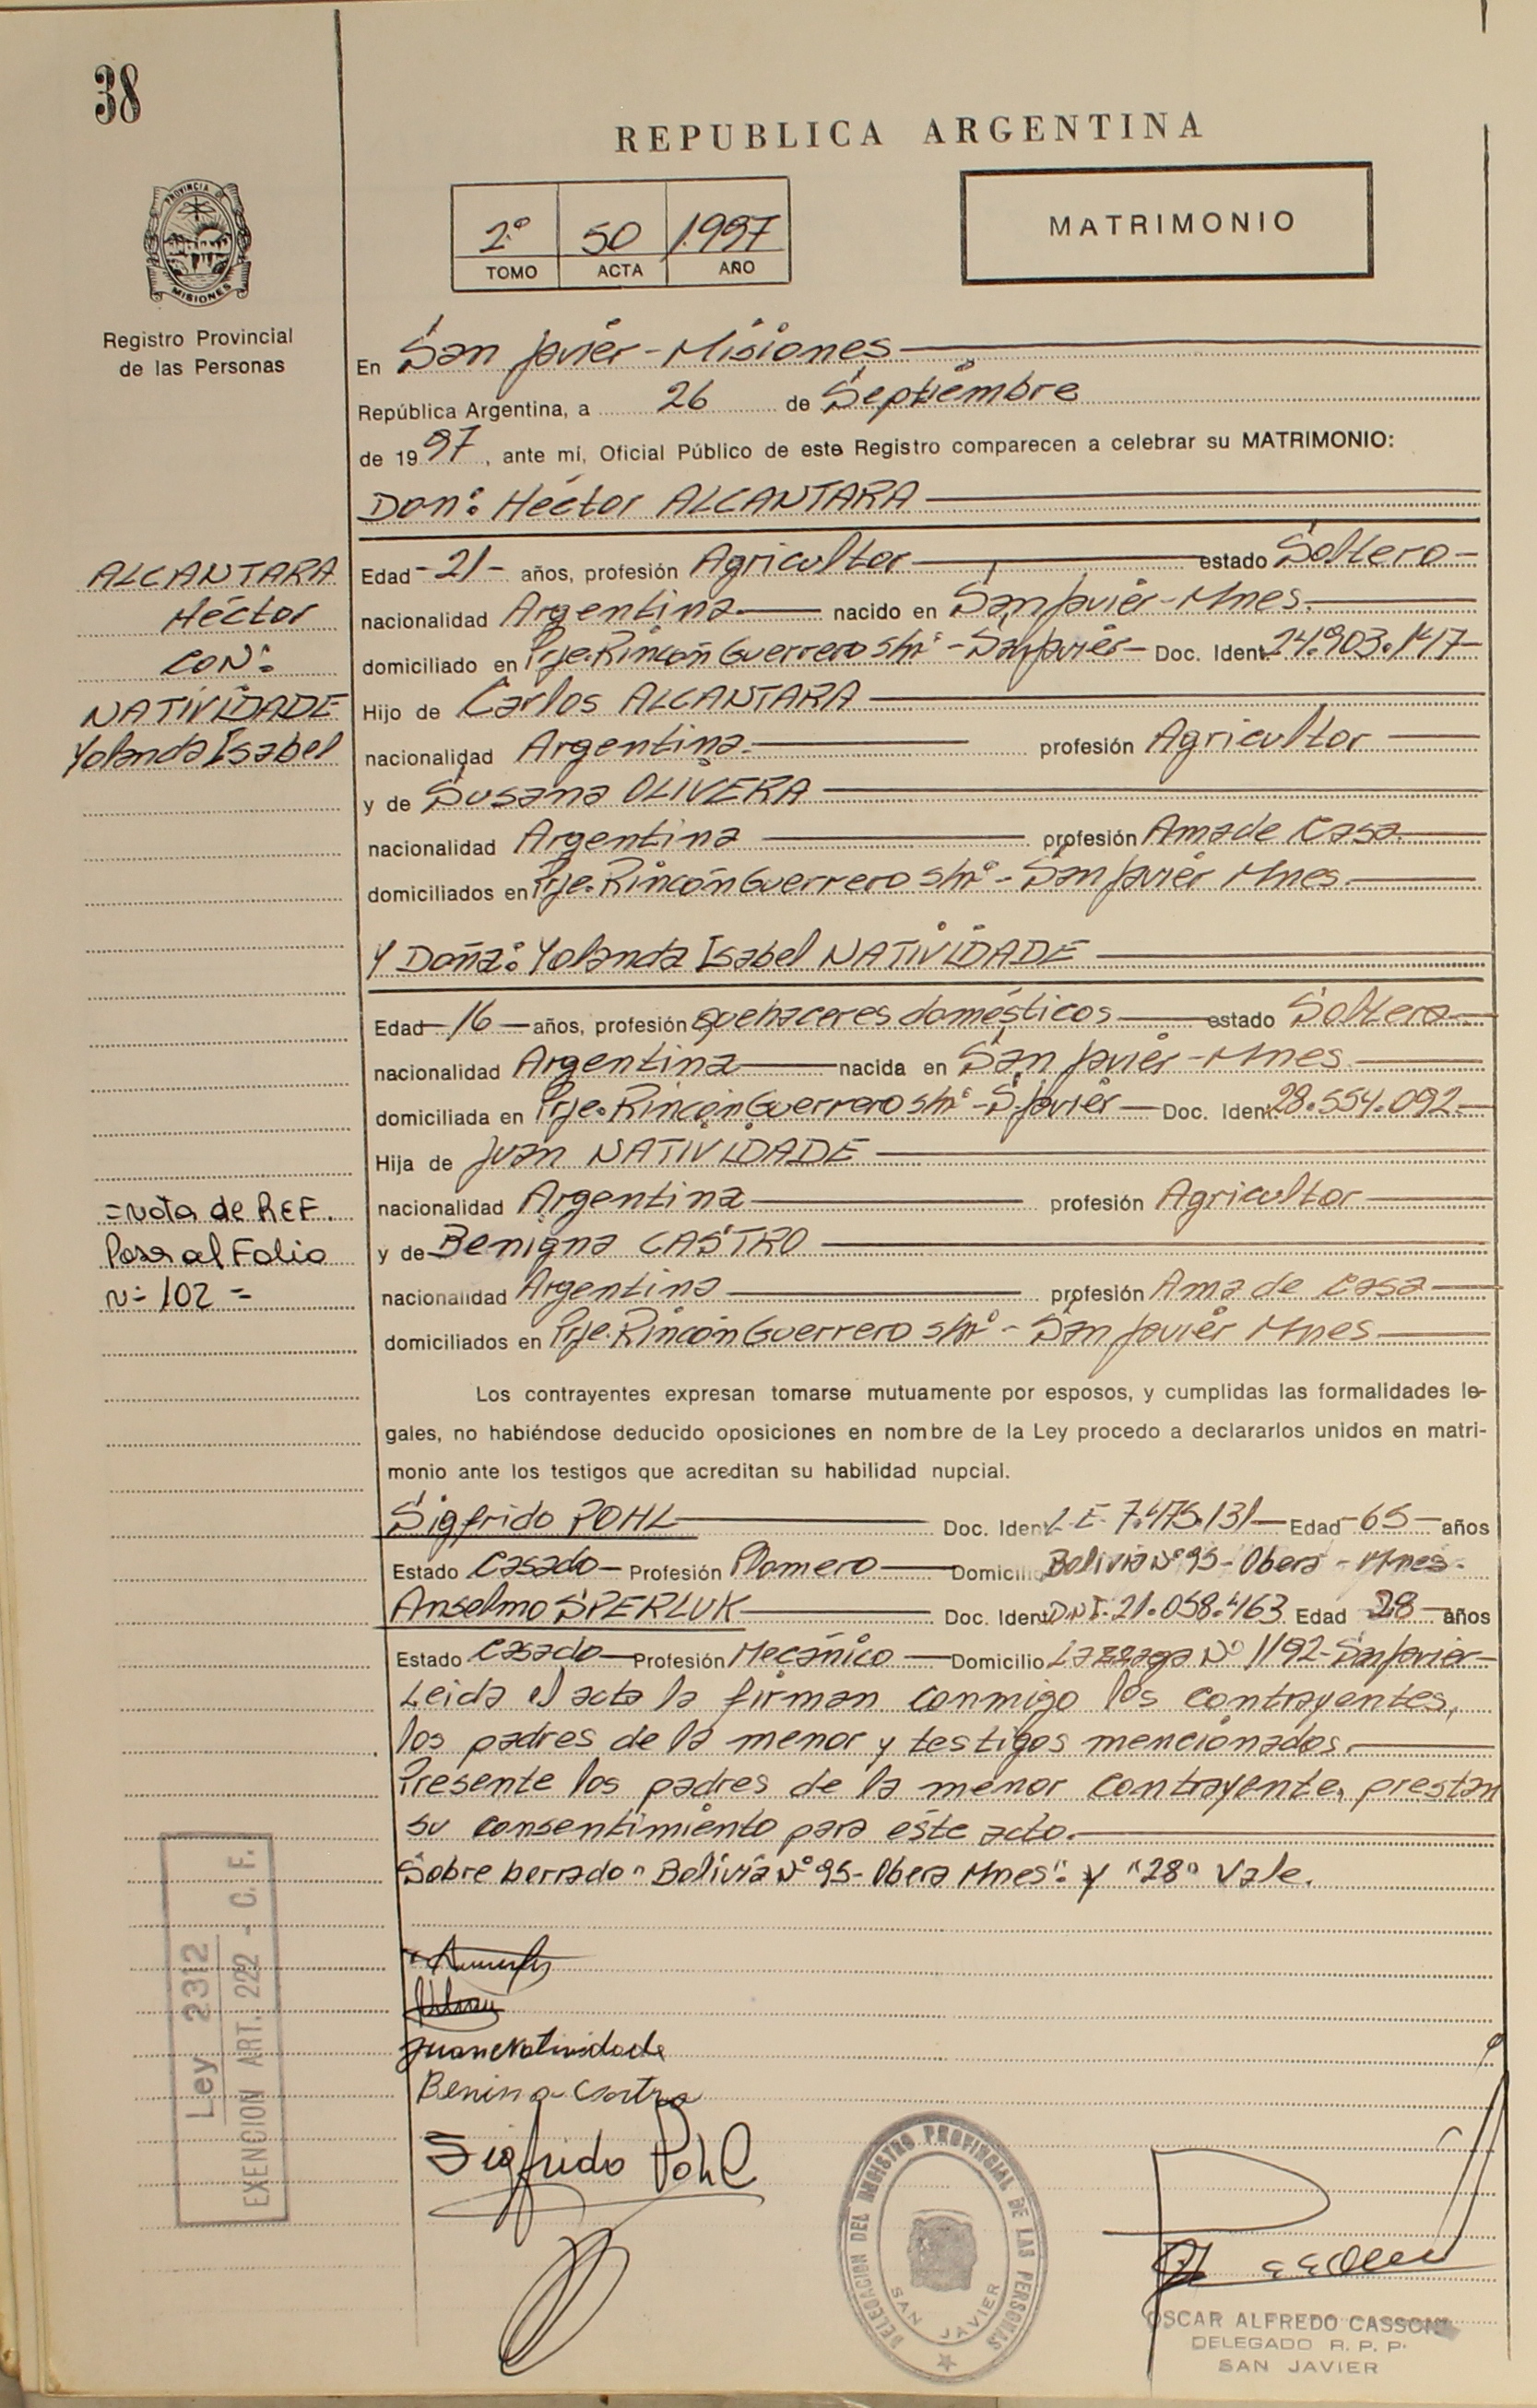 38
REPUBLICA ARGENTINA
PROVINCIA DE
MISIONES
Registro Provincial
de las Personas
2º 50 1997
TOMO ACTA AÑO
MATRIMONIO
En San Javier - Misiones
República Argentina, a 26 de Septiembre
de 1997, ante mi, Oficial Público de este Registro comparecen a celebrar su MATRIMONIO:
Don: Héctor ALCANTARA
ALCANTARA
Héctor
CON:
NATIVIDADE
Yolanda Isabel
Edad -21- años, profesión Agricultor estado Soltero-
nacionalidad Argentina nacido en San Javier - Mnes.
domiciliado en Pje. Rincón Guerrero s/nº - San Javier - Doc. Ident. 24.903.147-
Hijo de Carlos ALCANTARA
nacionalidad Argentina. profesión Agricultor
y de Susana OLIVERA
nacionalidad Argentina profesión Ama de Casa.
domiciliados en Pje. Rincón Guerrero s/nº - San Javier Mnes.
Y Doña: Yolanda Isabel NATIVIDADE
Edad -16- años, profesión quehaceres domésticos estado Soltera
nacionalidad Argentina nacida en San Javier - Mnes.
domiciliada en Pje. Rincón Guerrero s/nº - S. Javier - Doc. Ident. 28.554.092.-
Hija de Juan NATIVIDADE
nacionalidad Argentina profesión Agricultor
y de Benigna CASTRO
nacionalidad Argentina profesión Ama de Casa
domiciliados en Pje. Rincón Guerrero s/nº - San Javier Mnes
=Nota de REF.
Pasa al Folio
Nº 102 =
Los contrayentes expresan tomarse mutuamente por esposos, y cumplidas las formalidades le-
gales, no habiéndose deducido oposiciones en nombre de la Ley procedo a declararlos unidos en matri-
monio ante los testigos que acreditan su habilidad nupcial.
Sigfrido POHL Doc. Ident. L-E- 7.475.131- Edad -65- años
Estado Casado - Profesión Plomero - Domicilio Bolivia Nº 95 - Obera - Mnes.
Anselmo SPERLUK Doc. Ident. DNI. 21.058.463 Edad 28 años
Estado Casado - Profesión Mecánico - Domicilio Nº 1192 - San Javier -
Leida el acta la firman conmigo los contrayentes,
los padres de la menor y testigos mencionados.
Presente los padres de la menor contrayente, prestan
su consentimiento para éste acto.
Sobre berrado "Bolivia Nº 95 - Obera Mnes". y "28" Vale.
Juan Natividade
Benina Castro
Sigfrido Pohl
Ley 2312
EXENCION ART. 222 - C. F.
DELEGACION DEL REGISTRO PROVINCIAL DE LAS PERSONAS
SAN JAVIER
OSCAR ALFREDO CASSONI
DELEGADO R. P. P.
SAN JAVIER